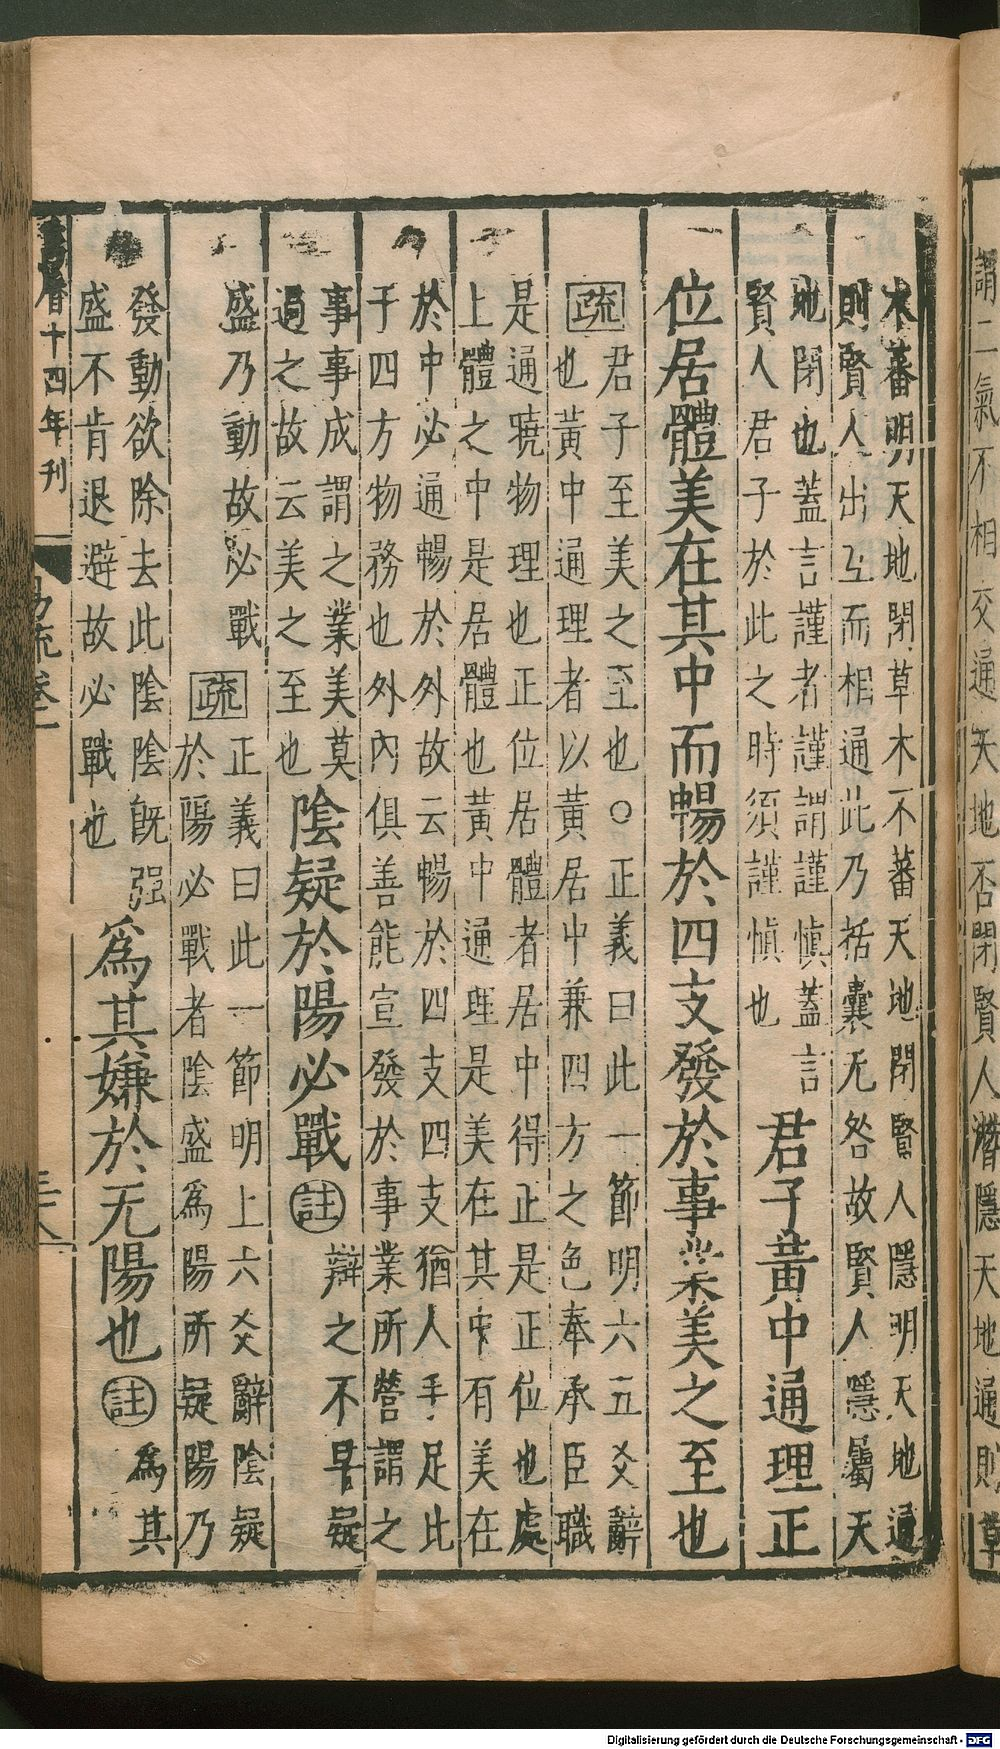 謂二氣不相交通天地否閉賢人潛隱天地通則草
木蕃明天地閉草木不蕃天地閉賢人隱明天地通
則賢人出互而相通此乃括囊无咎故賢人隱屬天
地閉也蓋言謹者謹謂謹愼蓋言
賢人君子於此之時須謹愼也
君子黃中通理正
位居體美在其中而暢於四支發於事業美之至也
疏
君子至美之至也○正義曰此一節明六五爻辭
也黃中通理者以黃居中兼四方之色奉承臣職
是通曉物理也正位居體者居中得正是正位也處
上體之中是居體也黃中通理是美在其中有美在
於中必通暢於外故云暢於四支四支猶人手足比
于四方物務也外內俱善能宣發於事業所營謂之
事事成謂之業美莫
過之故云美之至也
陰疑於陽必戰
註
辯之不早疑
盛乃動故必戰
疏
正義曰此一節明上六爻辭陰疑
於陽必戰者陰盛爲陽所疑陽乃
發動欲除去此陰陰旣强
盛不肯退避故必戰也
爲其嫌於无陽也
註
爲其
萬曆十四年刊
易疏卷一
Digitalisierung gefördert durch die Deutsche Forschungsgemeinschaft - DFG